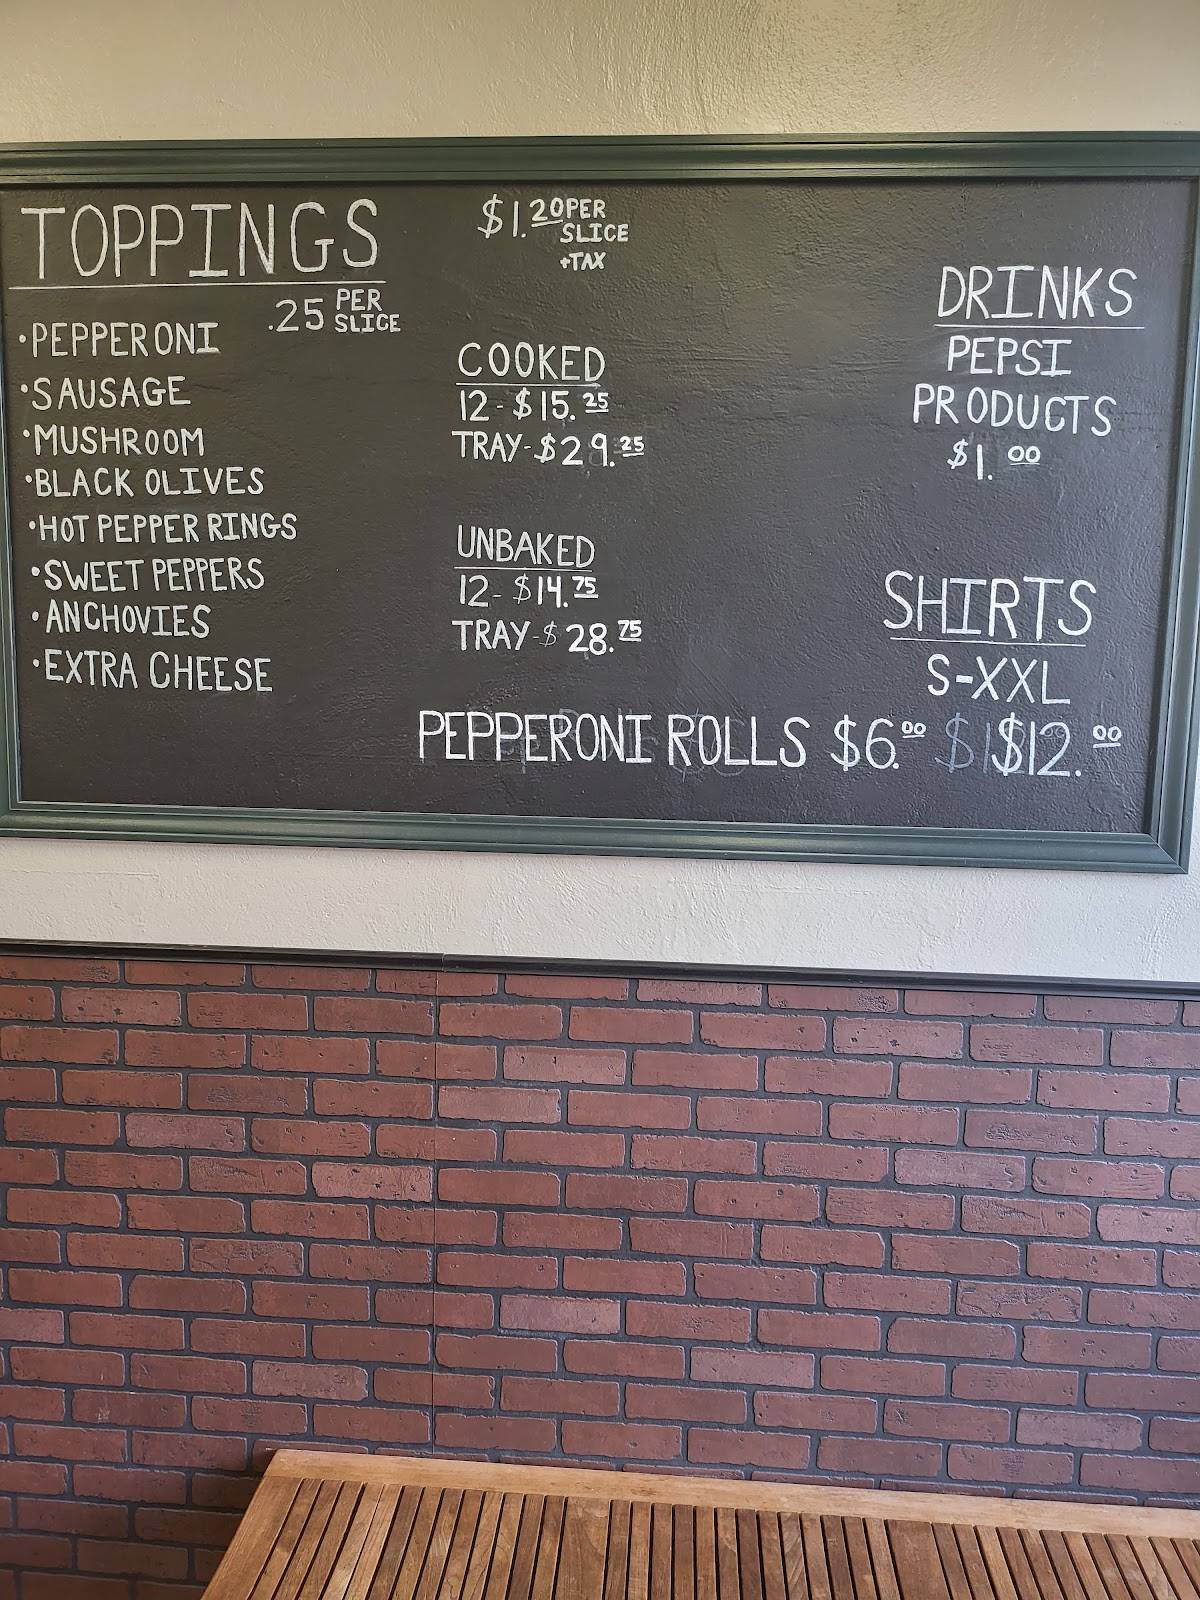 TOPPINGS
.25 PER SLICE
•PEPPERONI
•SAUSAGE
•MUSHROOM
•BLACK OLIVES
•HOT PEPPER RINGS
•SWEET PEPPERS
•ANCHOVIES
•EXTRA CHEESE
$1.20 PER
SLICE
+TAX
COOKED
12-$15.25
TRAY-$29.25
UNBAKED
12-$14.75
TRAY-$28.75
PEPPERONI ROLLS $6.00
DRINKS
PEPSI
PRODUCTS
$1.00
SHIRTS
S-XXL
$12.00